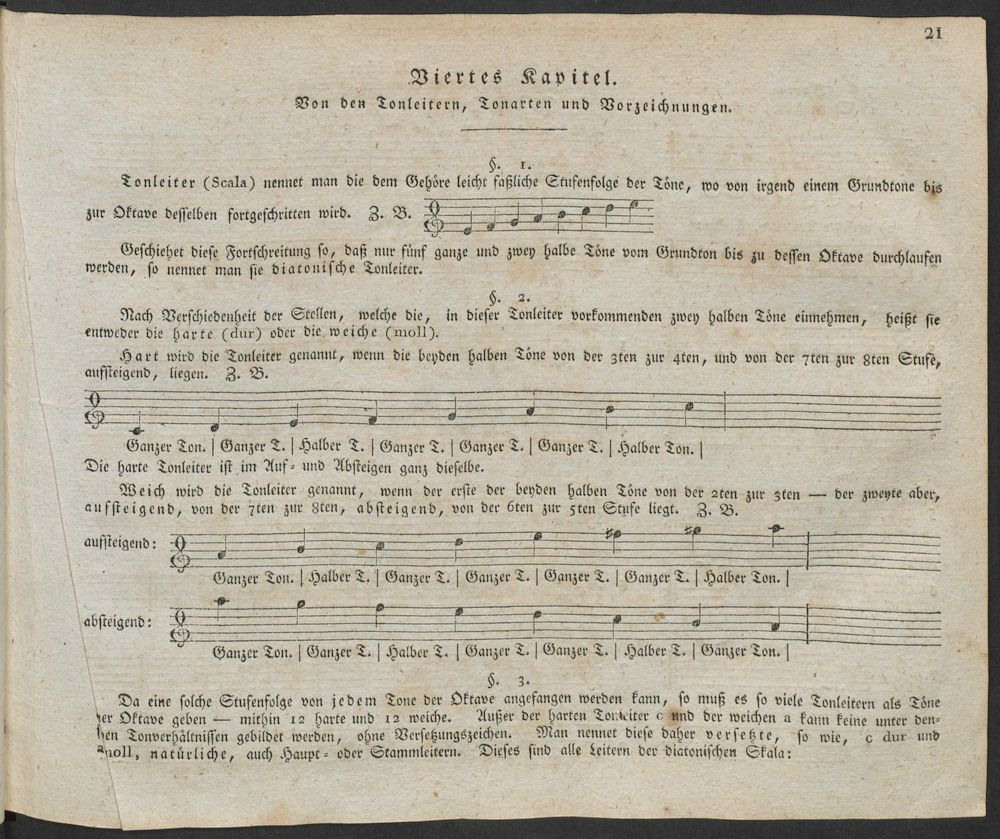 21
Viertes Kapitel.
Von den Tonleitern, Tonarten und Vorzeichnungen.
§. 1.
Tonleiter (Scala) nennet man die dem Gehöre leicht faßliche Stufenfolge der Töne, wo von irgend einem Grundtone bis
zur Oktave desselben fortgeschritten wird. Z. B.
Geschiehet diese Fortschreitung so, daß nur fünf ganze und zwey halbe Töne vom Grundton bis zu dessen Oktave durchlaufen
werden, so nennet man sie diatonische Tonleiter.
§. 2.
Nach Verschiedenheit der Stellen, welche die, in dieser Tonleiter vorkommenden zwey halben Töne einnehmen, heißt sie
entweder die harte (dur) oder die weiche (moll).
Hart wird die Tonleiter genannt, wenn die beyden halben Töne von der 3ten zur 4ten, und von der 7ten zur 8ten Stufe,
aufsteigend, liegen. Z. B.
Ganzer Ton. | Ganzer T. | Halber T. | Ganzer T. | Ganzer T. | Ganzer T. | Halber Ton. |
Die harte Tonleiter ist im Auf- und Absteigen ganz dieselbe.
Weich wird die Tonleiter genannt, wenn der erste der beyden halben Töne von der 2ten zur 3ten — der zweyte aber,
aufsteigend, von der 7ten zur 8ten, absteigend, von der 6ten zur 5ten Stufe liegt. Z. B.
aufsteigend:
Ganzer Ton. | Halber T. | Ganzer T. | Ganzer T. | Ganzer T. | Ganzer T. | Halber Ton. |
absteigend:
Ganzer Ton. | Ganzer T. | Halber T. | Ganzer T. | Ganzer T. | Halber T. | Ganzer Ton. |
§. 3.
Da eine solche Stufenfolge von jedem Tone der Oktave angefangen werden kann, so muß es so viele Tonleitern als Töne
der Oktave geben — mithin 12 harte und 12 weiche. Außer der harten Tonleiter c und der weichen a kann keine unter den-
sen Tonverhältnissen gebildet werden, ohne Versetzungszeichen. Man nennet diese daher versetzte, so wie, c dur und
a moll, natürliche, auch Haupt- oder Stammleitern. Dieses sind alle Leitern der diatonischen Skala: